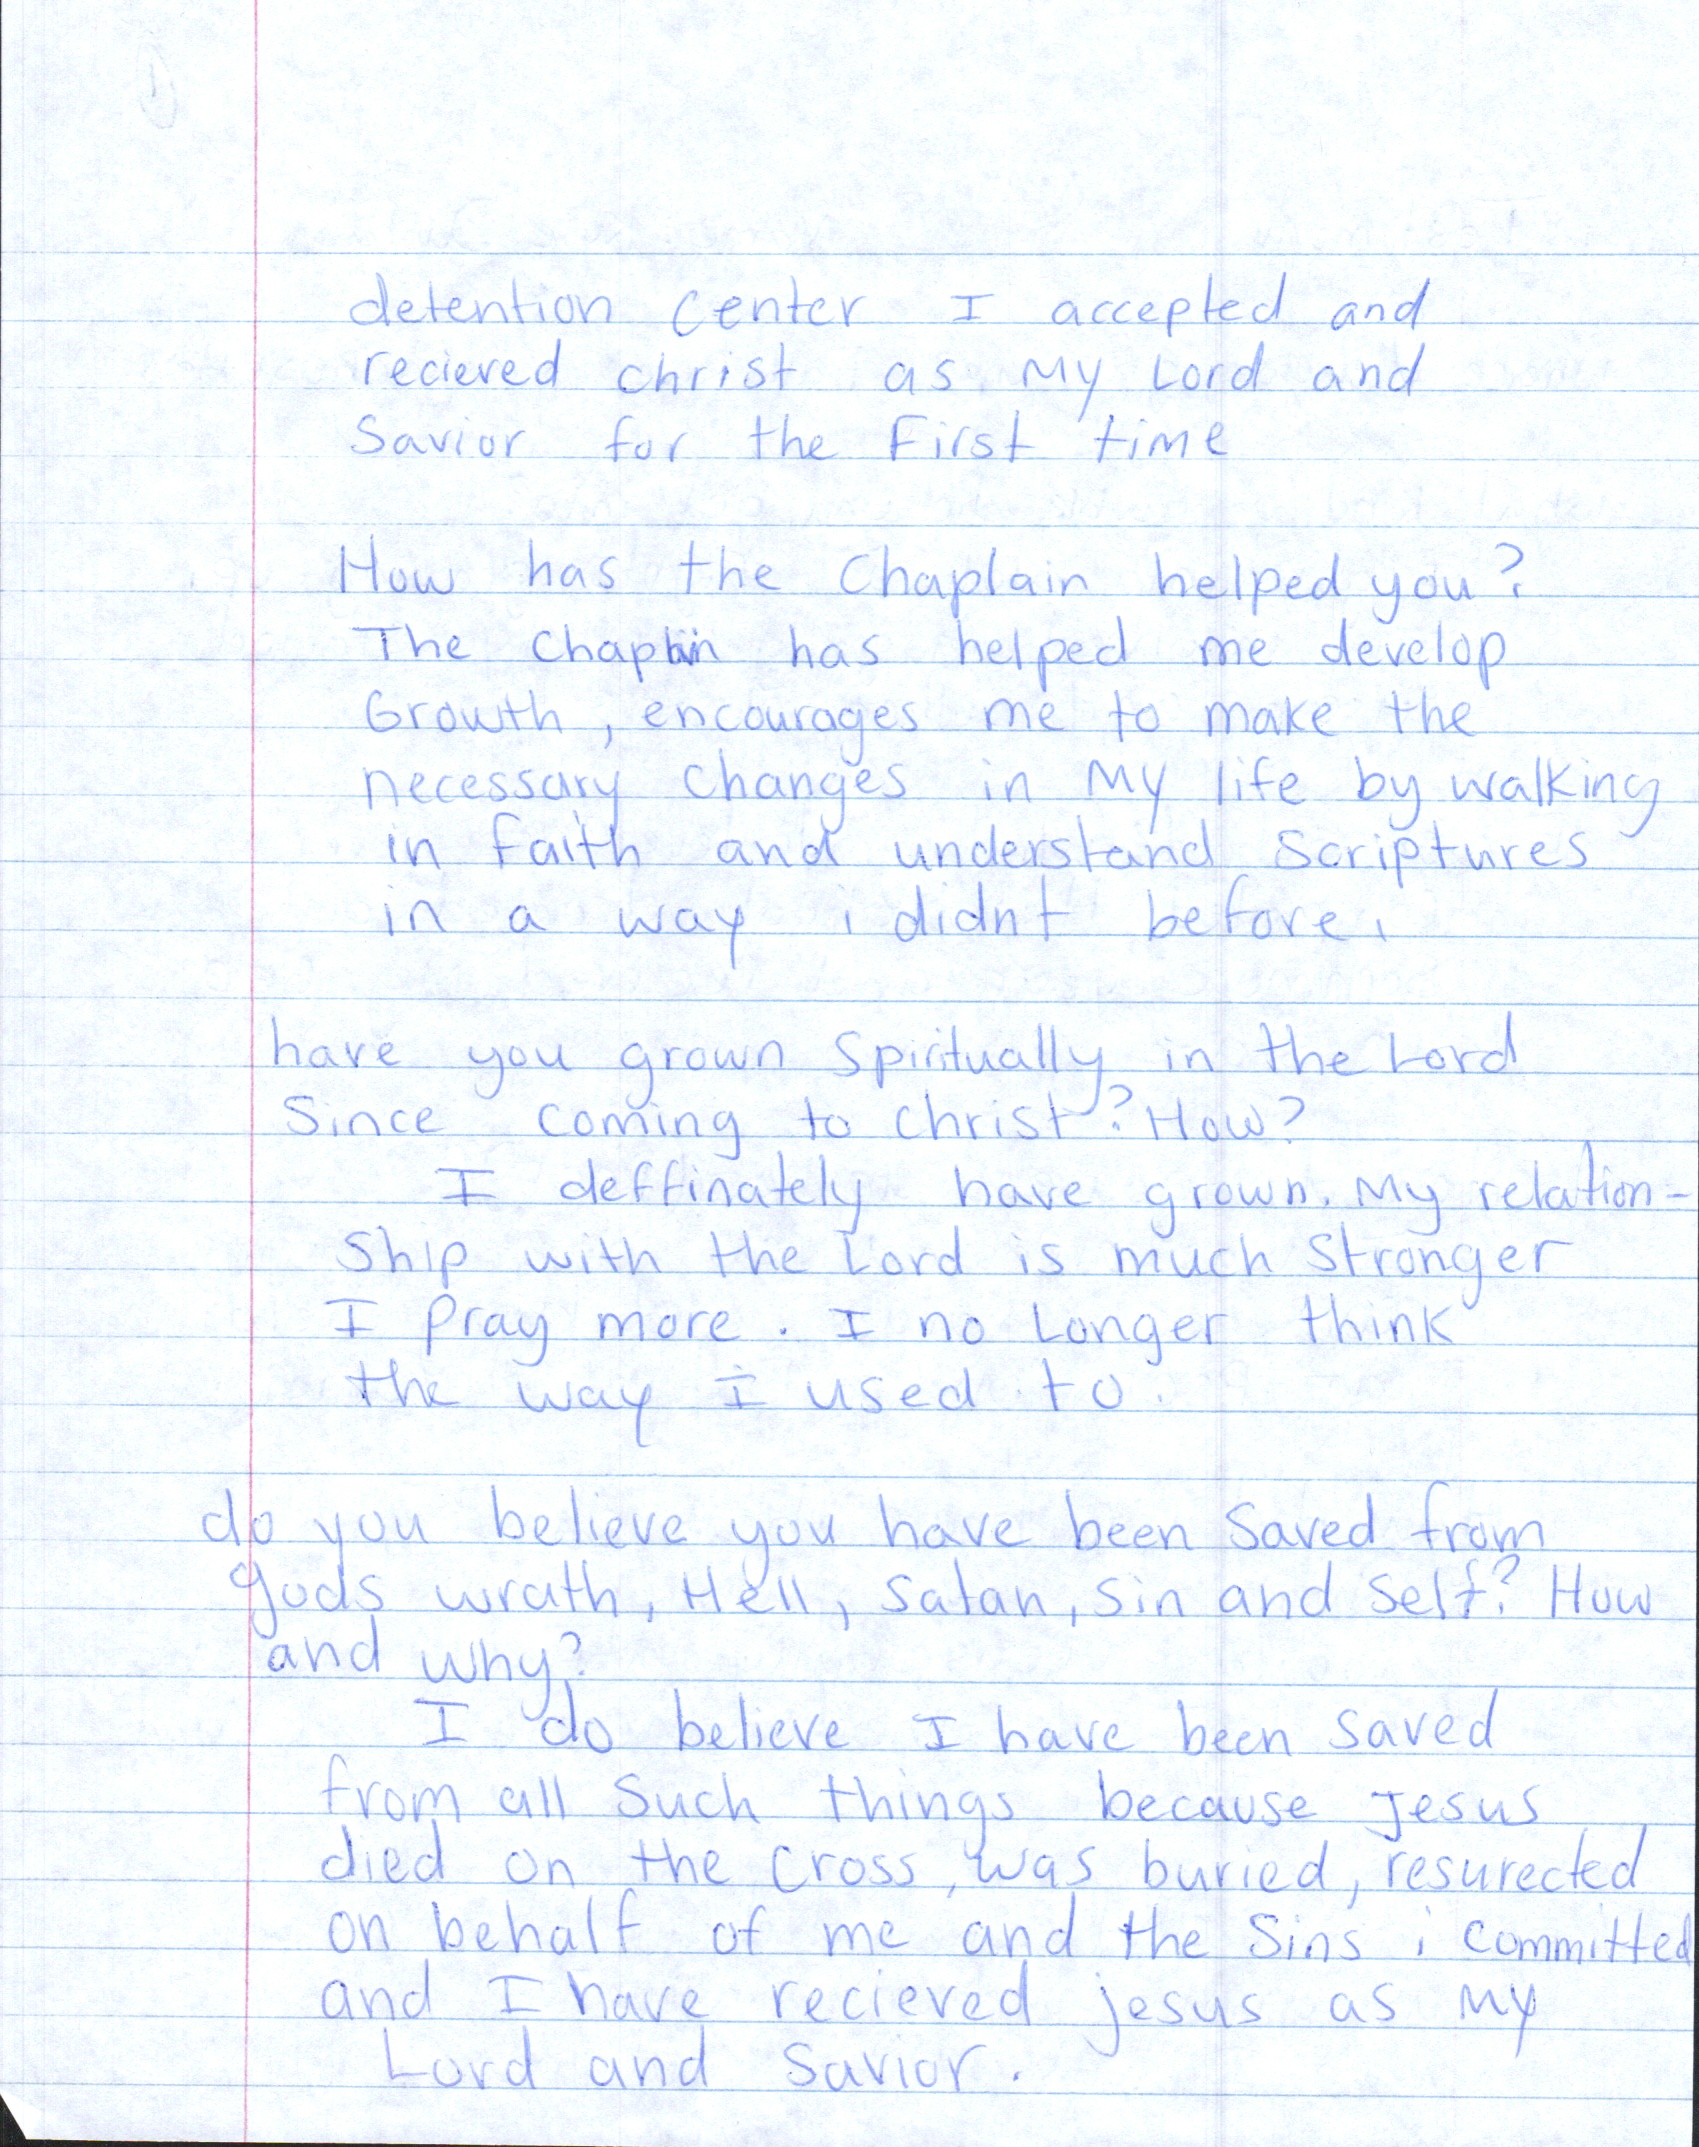 detention center I accepted and
recieved christ as My Lord and
Savior for the First time
How has the Chaplain helped you?
The Chaplin has helped me develop
Growth, encourages me to make the
necessary changes in My life by walking
in faith and understand Scriptures
in a way i didnt before.
have you grown Spiritually in the Lord
Since coming to christ? How?
I deffinately have grown. My relation-
Ship with the Lord is much Stronger
I Pray more. I no Longer think
the way I used to.
do you believe you have been Saved from
gods wrath, Hell, Satan, Sin and Self? How
and why?
I do believe I have been Saved
from all Such things because Jesus
died on the Cross, was buried, resurected
on behalf of me and the Sins i Committed
and I have recieved jesus as My
Lord and Savior.